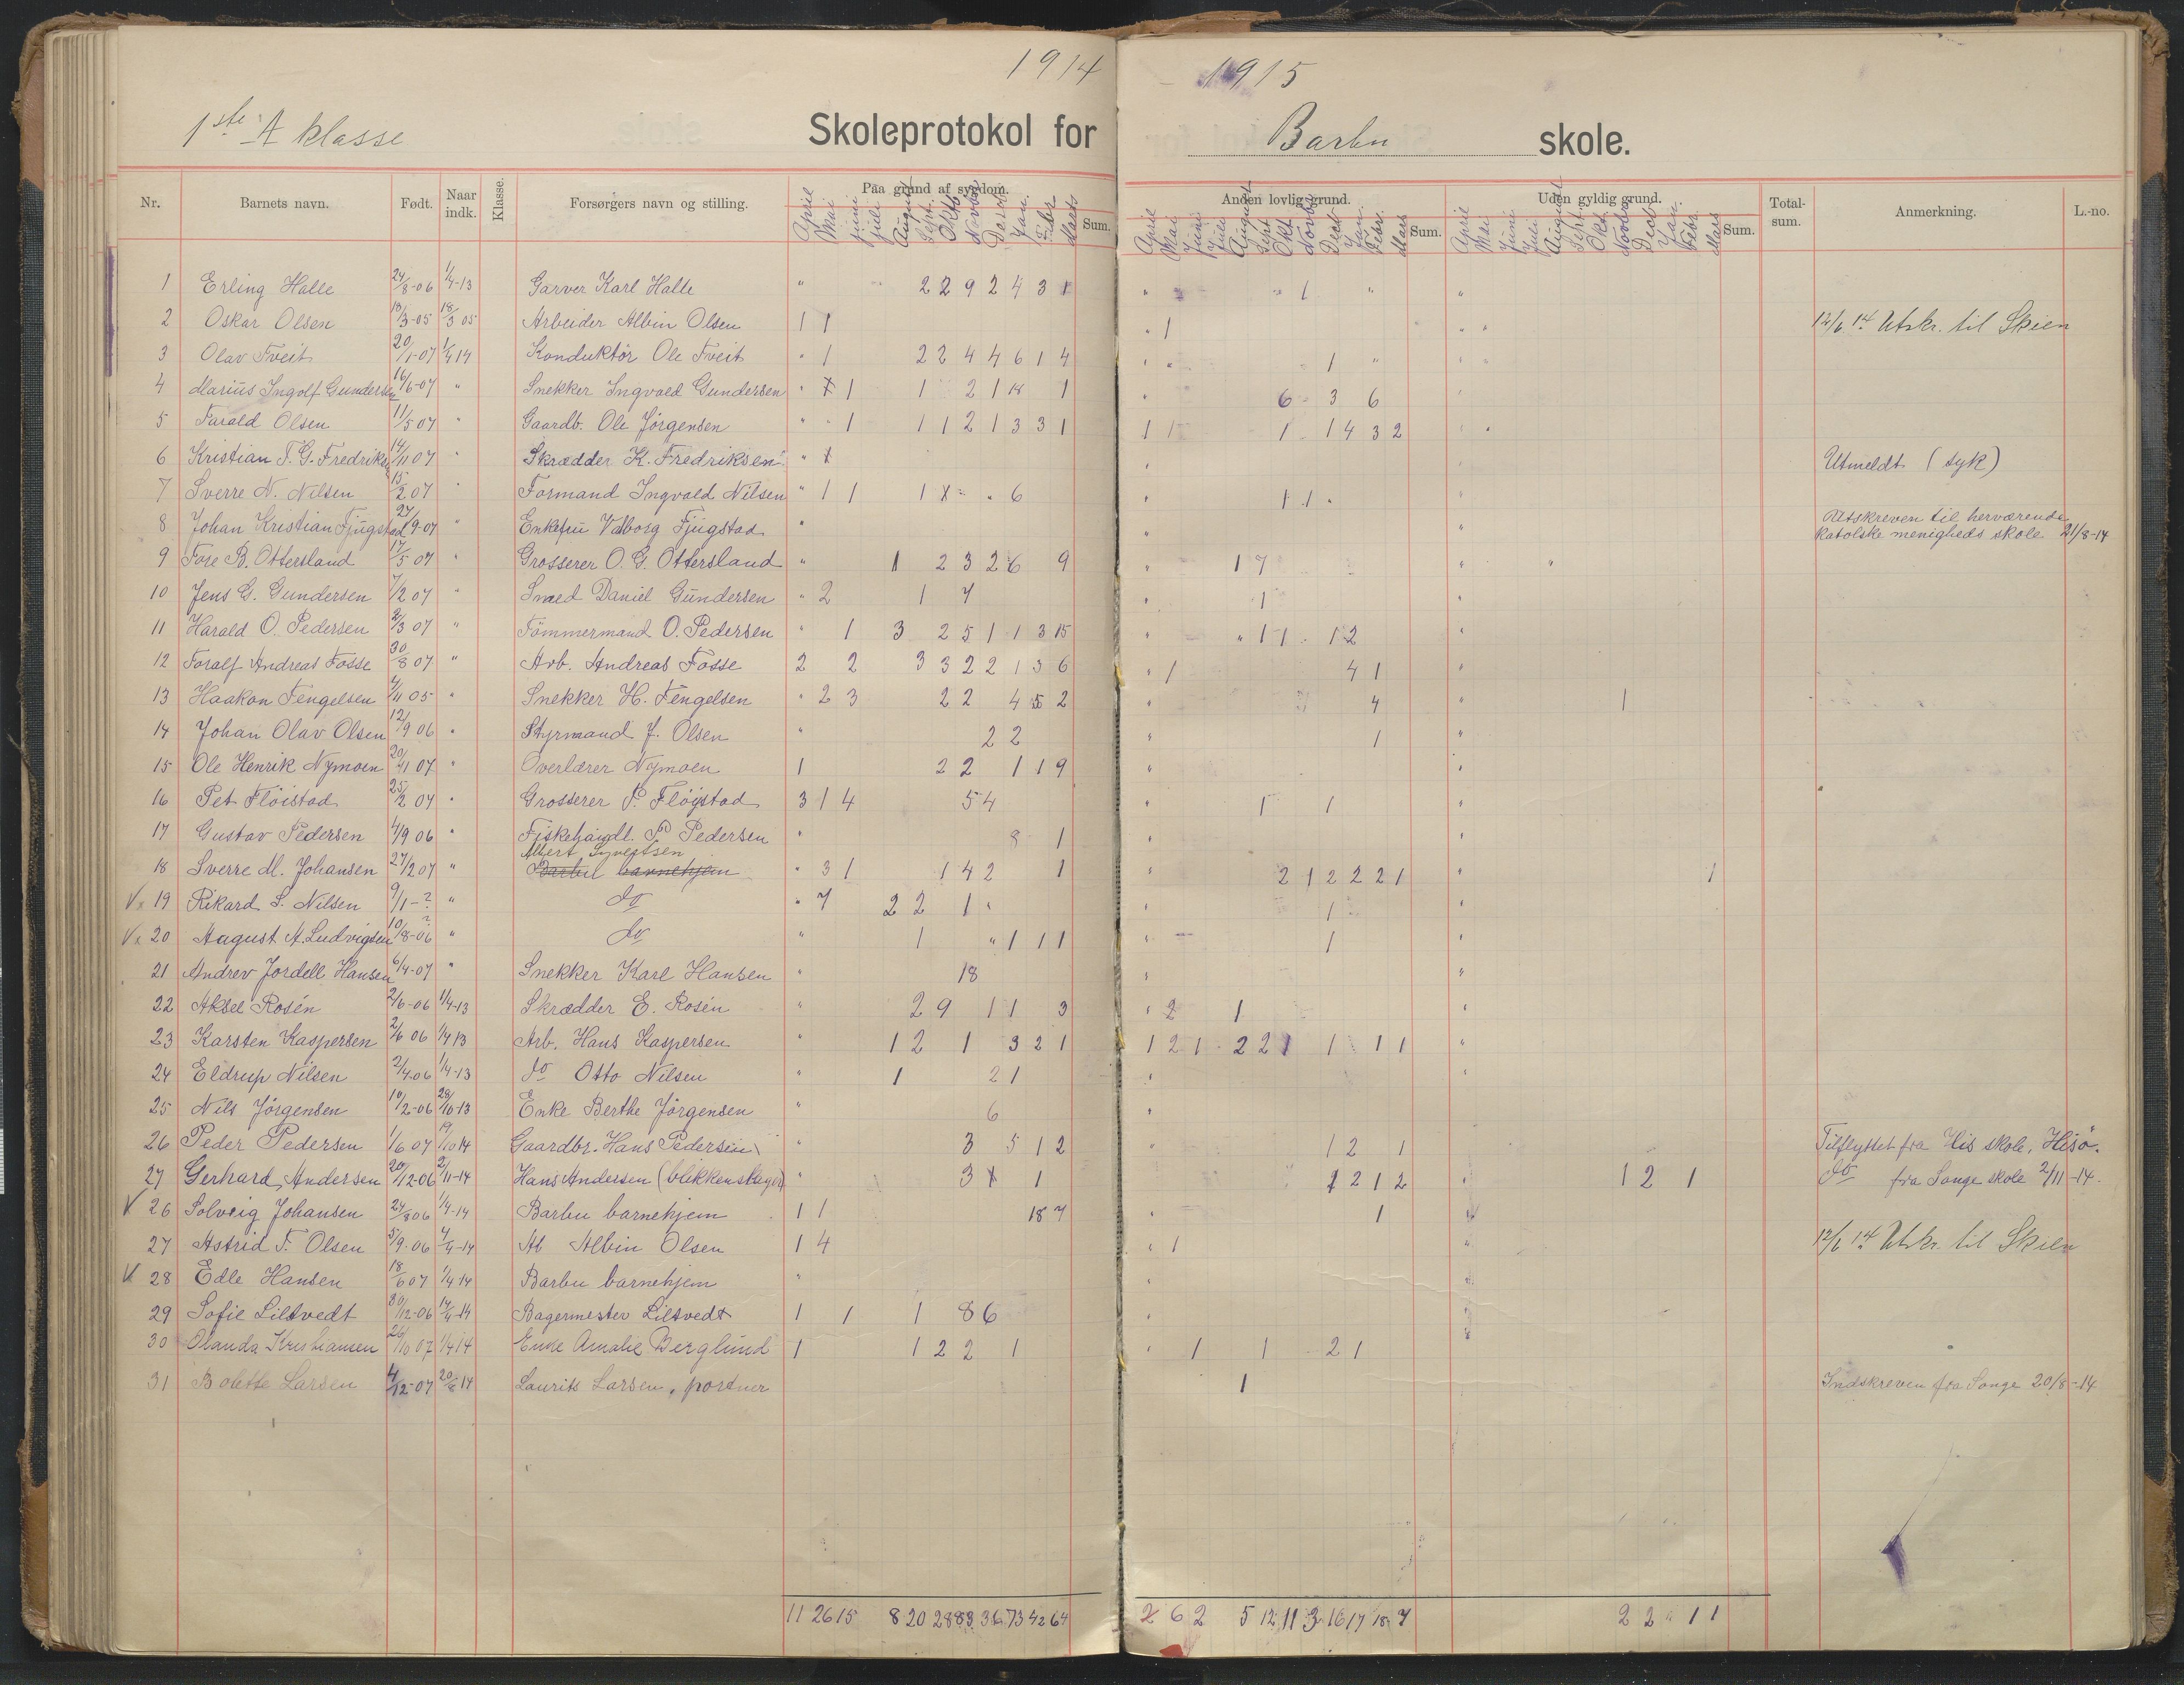 1914 - 1915
1ste A klasse Skoleprotokol for Barbu skole.
Nr. Barnets navn. Født. Naar indk. Klasse. Forsørgers navn og stilling. Paa grund af sygdom. Sum. Anden lovlig grund. Sum. Uden gyldig grund. Sum. Total-sum. Anmerkning. L.-no.
April Mai Juni Juli August Sept. Okt. Novbr Decbr Jan. Febr Marts April Mai Juni Juli August Sept Okt. Novbr Decbr Jan. Febr. Mars April Mai Juni Juli August Sept. Okt. Novbr Decbr Jan. Febr. Mars
1 Erling Halle 24/8-06 1/4-13 Garver Karl Halle " 2 2 9 2 4 3 1 " " 1 " "
2 Oskar Olsen 13/3-05 18/3 05 Arbeider Albin Olsen 1 1 " 1 " " 12/6 14 Utskr. til Skien
3 Olav Tveit 20/1-07 1/4 14 Konduktør Ole Tveit " 1 2 2 4 4 6 1 4 " " 1 "
4 Marius Ingolf Gundersen 16/6-07 " Snekker Ingvald Gundersen " 1 1 2 1 1 " 6 3 6
5 Torald Olsen 11/5 07 " Gaardb. Ole Jørgensen " " 1 1 1 2 1 3 3 1 1 1 1 1 4 3 2
6 Kristian T. G. Fredriksen 14/11 07 " Skrædder K. Fredriksen " Utmeldt (syk)
7 Sverre N. Nilsen 15/2 07 " Formand Ingvald Nilsen " 1 1 1 6 " 1 1
8 Johan Kristian Fjugstad 27/9-07 " Enkefru Valborg Fjugstad " " " Utskreven til herværende
katolske menigheds skole 21/8-14
9 Tore B. Ottersland 17/5 07 " Grosserer O. G. Ottersland " 1 2 3 2 6 9 " 1 7 " "
10 Jens G. Gundersen 7/2 07 " Smed Daniel Gundersen " 2 1 7 " 1 "
11 Harald O. Pedersen 2/3 07 " Tømmermand O. Pedersen " 1 3 2 5 1 1 3 15 " " 1 1 1 2 "
12 Toralf Andreas Fosse 30/8 07 " Arb. Andreas Fosse 2 2 3 3 2 2 1 3 6 " 1 4 1 "
13 Haakon Tengelsen 4/11 05 " Snekker H. Tengelsen " 2 3 2 2 4 5 2 " 4 " 1
14 Johan Olav Olsen 12/9 06 " Styrmand J. Olsen " 2 2 " 1 "
15 Ole Henrik Nymoen 20/11 07 " Overlærer Nymoen 1 2 2 1 1 9 " "
16 Pet Fløistad 25/2 07 " Grosserer P. Fløystad 3 1 4 5 4 " 1 1 "
17 Gustav Pedersen 4/9 06 " Fiskehandl. P Pedersen " 8 1 " "
Albert Syvertsen
18 Sverre M. Johansen 27/2 07 " Barbu barnehjem " 3 1 1 4 2 1 " 2 1 2 2 2 1 " 1
V x 19 Rikard S. Nilsen 9/1-? " do " 7 2 2 1 " " 1 "
V x 20 August A. Ludvigsen 10/8-06 ? " do " 1 " 1 1 1 " 1 "
21 Andrev Jordell Hansen 6/4-07 " Snekker Karl Hansen " 18 " "
22 Aksel Rosén 2/6-06 1/4-13 Skrædder E. Rosén " 2 9 1 1 3 " 2 1 "
23 Karsten Kaspersen 2/6 06 1/4 13 Arb. Hans Kaspersen " 1 2 1 3 2 1 1 2 1 2 2 1 1 1 1 "
24 Eldrup Nilsen 2/4 06 1/4-13 do Otto Nilsen " 1 2 1 " "
25 Nils Jørgensen 10/2-06 28/10-13 Enke Berthe Jørgensen " 6 "
26 Peder Pedersen 1/6 07 19/10 14 Gaardbr. Hans Pedersen " 3 5 1 2 " 1 2 1 Tilflyttet fra His skole, Hisø.
27 Gerhard Andersen 20/12-06 2/11-14 Hans Andersen (blikkenslager) " 3 1 1 2 1 2 " 1 2 1 do fra Songe skole 2/11-14.
V 26 Solveig Johansen 24/8 06 1/4-14 Barbu barnehjem 1 1 18 7 " 1
27 Astrid T. Olsen 5/9-06 4/4-14 Ab Albin Olsen 1 4 " 1 " 12/6 14 Utskr. til Skien
V 28 Edle Hansen 18/6 07 1/4 14 Barbu barnehjem " "
29 Sofie Liltvedt 30/12-06 14/4-14 Bagermester Liltvedt 1 1 1 8 6 "
30 Olanda Kristiansen 26/10 07 1/4 14 Enke Amalie Berglund 1 1 2 2 1 " 1 1 2 1
31 Bolette Larsen 4/12-07 20/8 14 Laurits Larsen, portner 1 Indskreven fra Songe 20/8-14
11 26 15 8 20 28 83 36 73 42 64 2 6 2 5 12 11 3 16 17 18 7 2 2 " 1 1